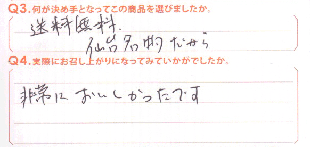 Q3.何が決め手となってこの商品を選びましたか。
送料無料.
仙台名物だから
Q4.実際にお召し上がりになってみていかがでしたか。
非常においしかったです